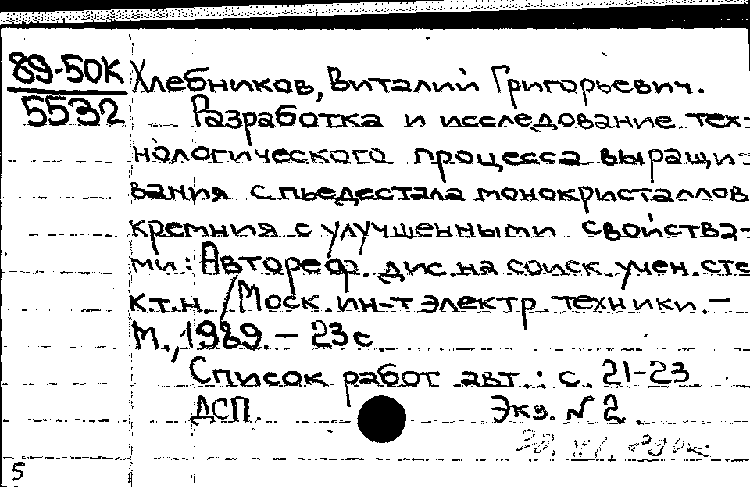 89-50К Хлебников, Виталий Григорьевич.
5532 Разработка и исследование тех-
нологического процесса выращи-
вания с пьедестала монокристаллов
кремния с улучшенными свойства-
ми: Автореф. дис. на соиск. учен. сте
к.т.н. / Моск. ин-т электр. техники. —
М., 1989. — 23 с.
Список работ авт.: с. 21-23
ДСП. Экз. № 2.
5